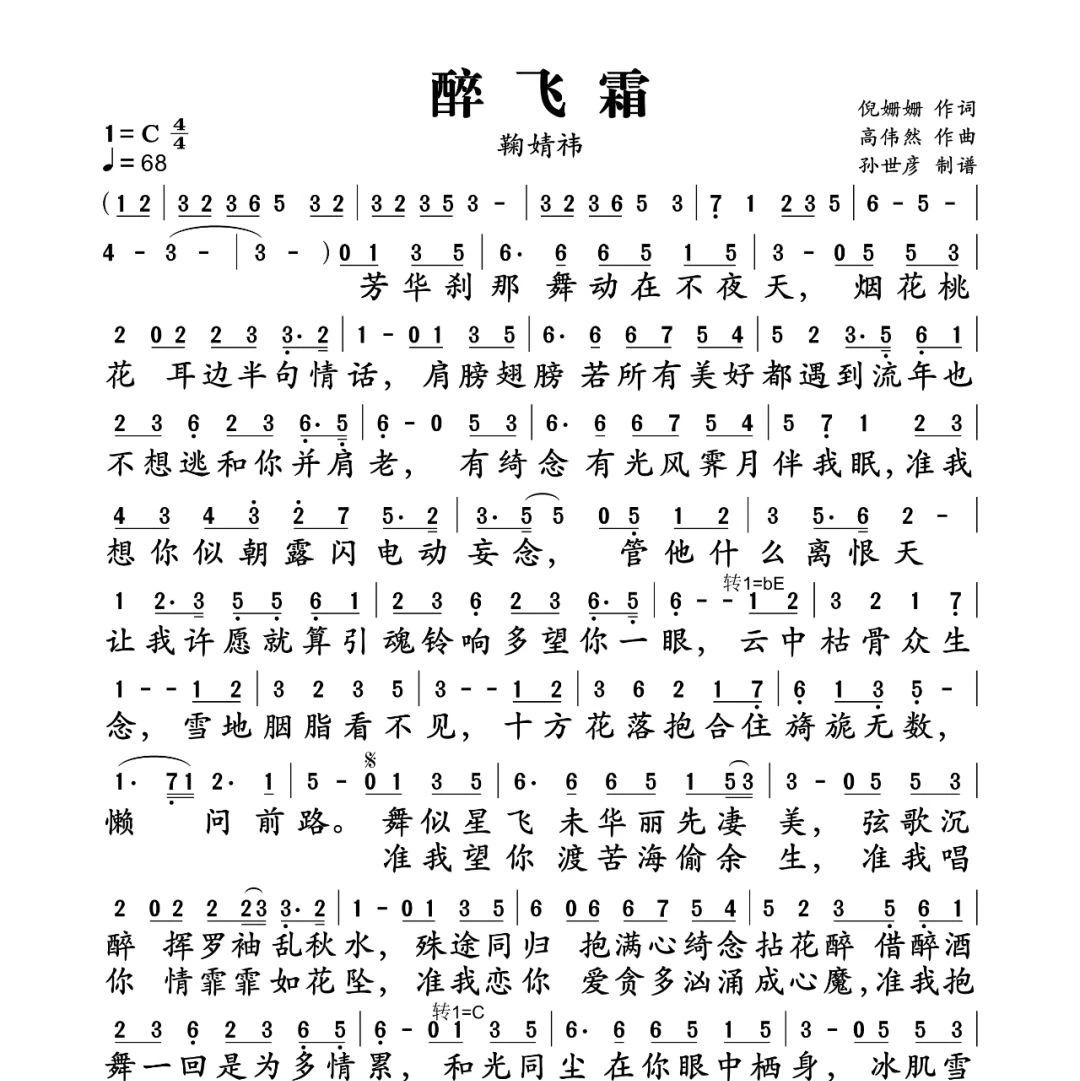 醉飞霜
倪姗姗 作词
1=C 4/4
鞠婧祎
高伟然 作曲
♩=68
孙世彦 制谱
(1 2 | 3 2 3 6 5 3 2 | 3 2 3 5 3 - | 3 2 3 6 5 3 | 7̣ 1 2 3 5 | 6 - 5 - |
4 - 3 - | 3 - ) 0 1 3 5 | 6· 6 6 5 1 5 | 3 - 0 5 5 3 |
芳华刹那 舞动在不夜天， 烟花桃
2 0 2 2 3 3̣· 2 | 1 - 0 1 3 5 | 6· 6 6 7 5 4 | 5 2 3· 5̣ 6̣ 1 |
花 耳边半句情话， 肩膀翅膀 若所有美好都遇到流年也
2 3 6̣ 2 3 6̣· 5̣ | 6̣ - 0 5 3 | 6· 6 6 7 5 4 | 5 7̣ 1 2 3 |
不想逃和你并肩老， 有绮念 有光风霁月伴我眠，准我
4 3 4 3̇ 2̇ 7 5· 2 | 3· 5 5 0 5̣ 1 2 | 3 5· 6 2 - |
想你似朝露闪电动妄念， 管他什么离恨天
转1=bE
1 2· 3 5̣ 5̣ 6̣ 1 | 2 3 6̣ 2 3 6̣· 5̣ | 6̣ - - 1 2 | 3 2 1 7̣ |
让我许愿就算引魂铃响多望你一眼， 云中枯骨众生
1 - - 1 2 | 3 2 3 5 | 3 - - 1 2 | 3 6 2 1 7̣ | 6̣ 1 3̣ 5̣ - |
念， 雪地胭脂看不见， 十方花落抱合住旖旎无数，
𝄋
1· 7̣ 1 2· 1 | 5 - 0 1 3 5 | 6· 6 6 5 1 5 3 | 3 - 0 5 5 3 |
懒 问前路。 舞似星飞 未华丽先凄 美， 弦歌沉
准我望你 渡苦海偷余 生， 准我唱
2 0 2 2 2 3 3̣· 2 | 1 - 0 1 3 5 | 6 0 6 6 7 5 4 | 5 2 3 5̣ 6̣ 1 |
醉 挥罗袖乱秋水， 殊途同归 抱满心绮念拈花醉 借醉酒
你 情霏霏如花坠， 准我恋你 爱贪多汹涌成心魔，准我抱
转1=C
2 3 6̣ 2 3 6̣ 5̣ | 6̣ - 0 1 3 5 | 6· 6 6 5 1 5 | 3 - 0 5 5 3 |
舞一回是为多情累， 和光同尘 在你眼中栖身， 冰肌雪